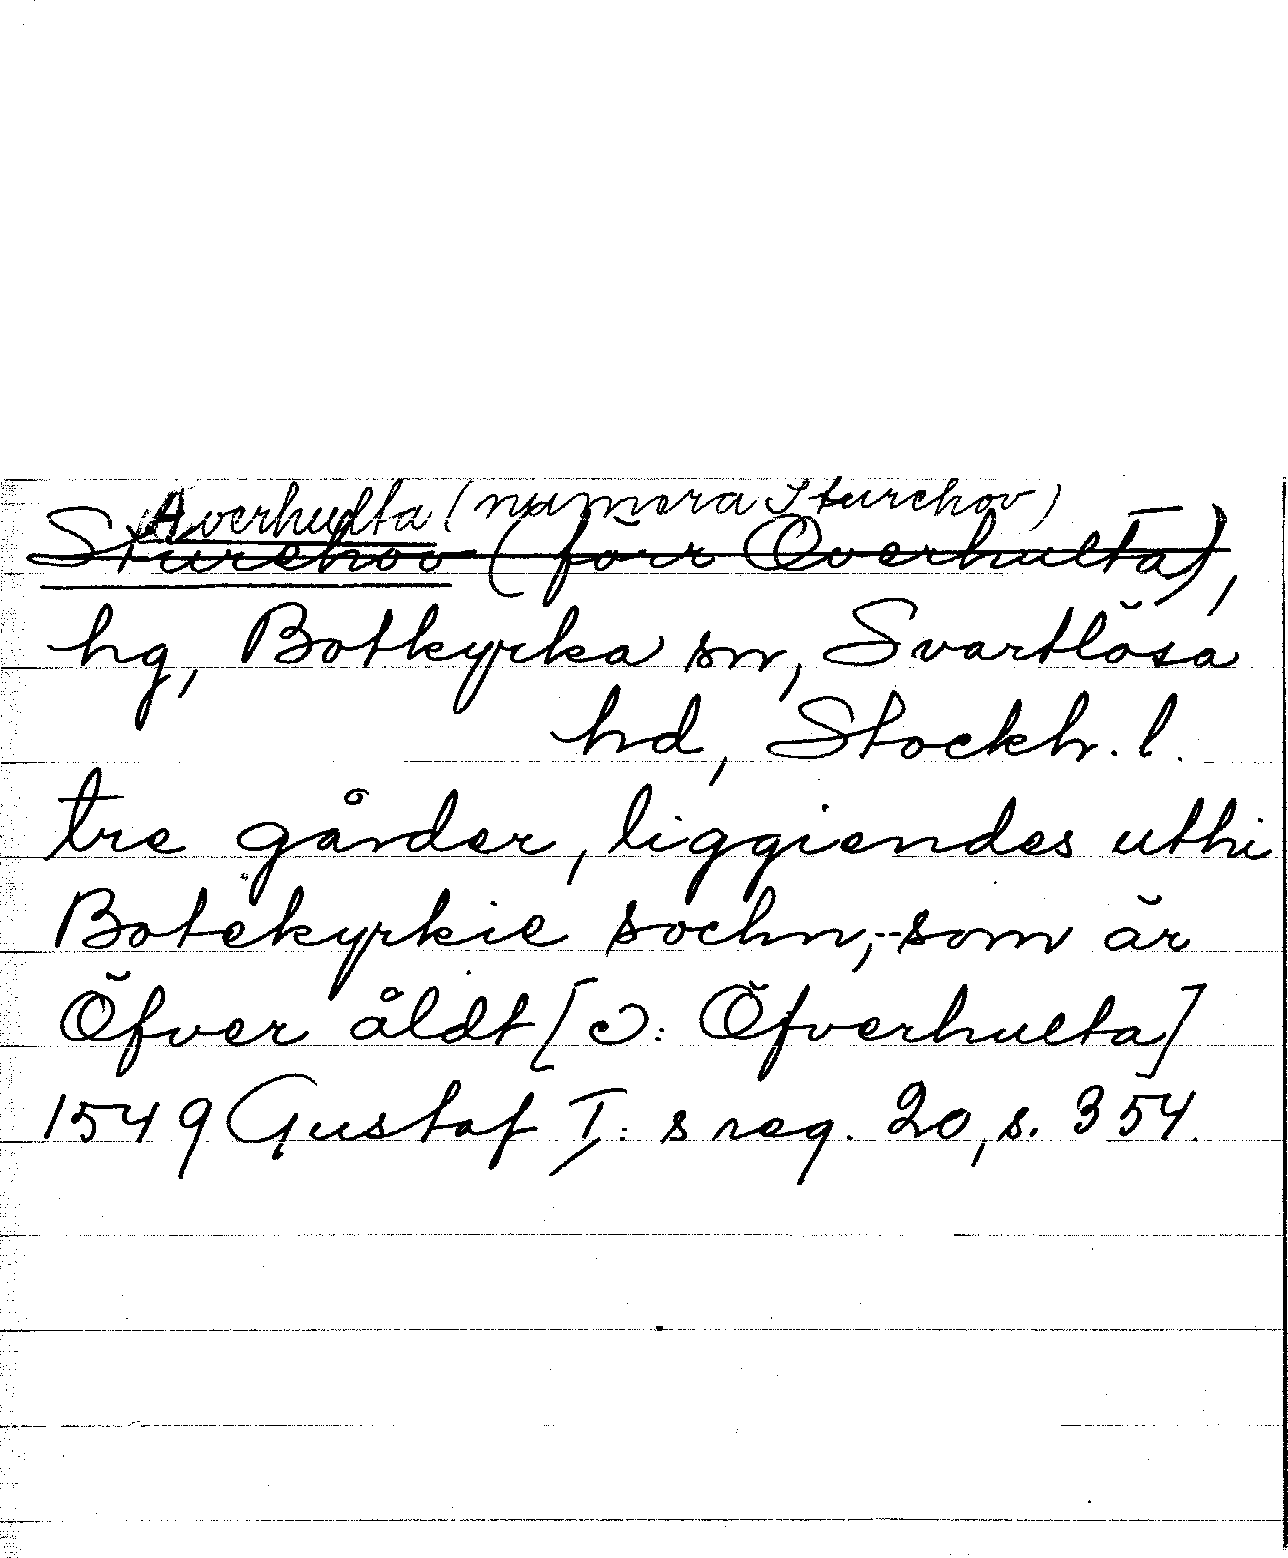 Averhulta (numera Sturehov)
Sturehov (förr Överhulta),
hg, Botkyrka sn, Svartlösa
hd, Stockh. l.
tre gårder, liggiendes uthi
Botekyrkie sochn,--som är
Öfver åldt [ɔ: Öfverhulta]
1549 Gustaf I:s reg. 20, s. 354.